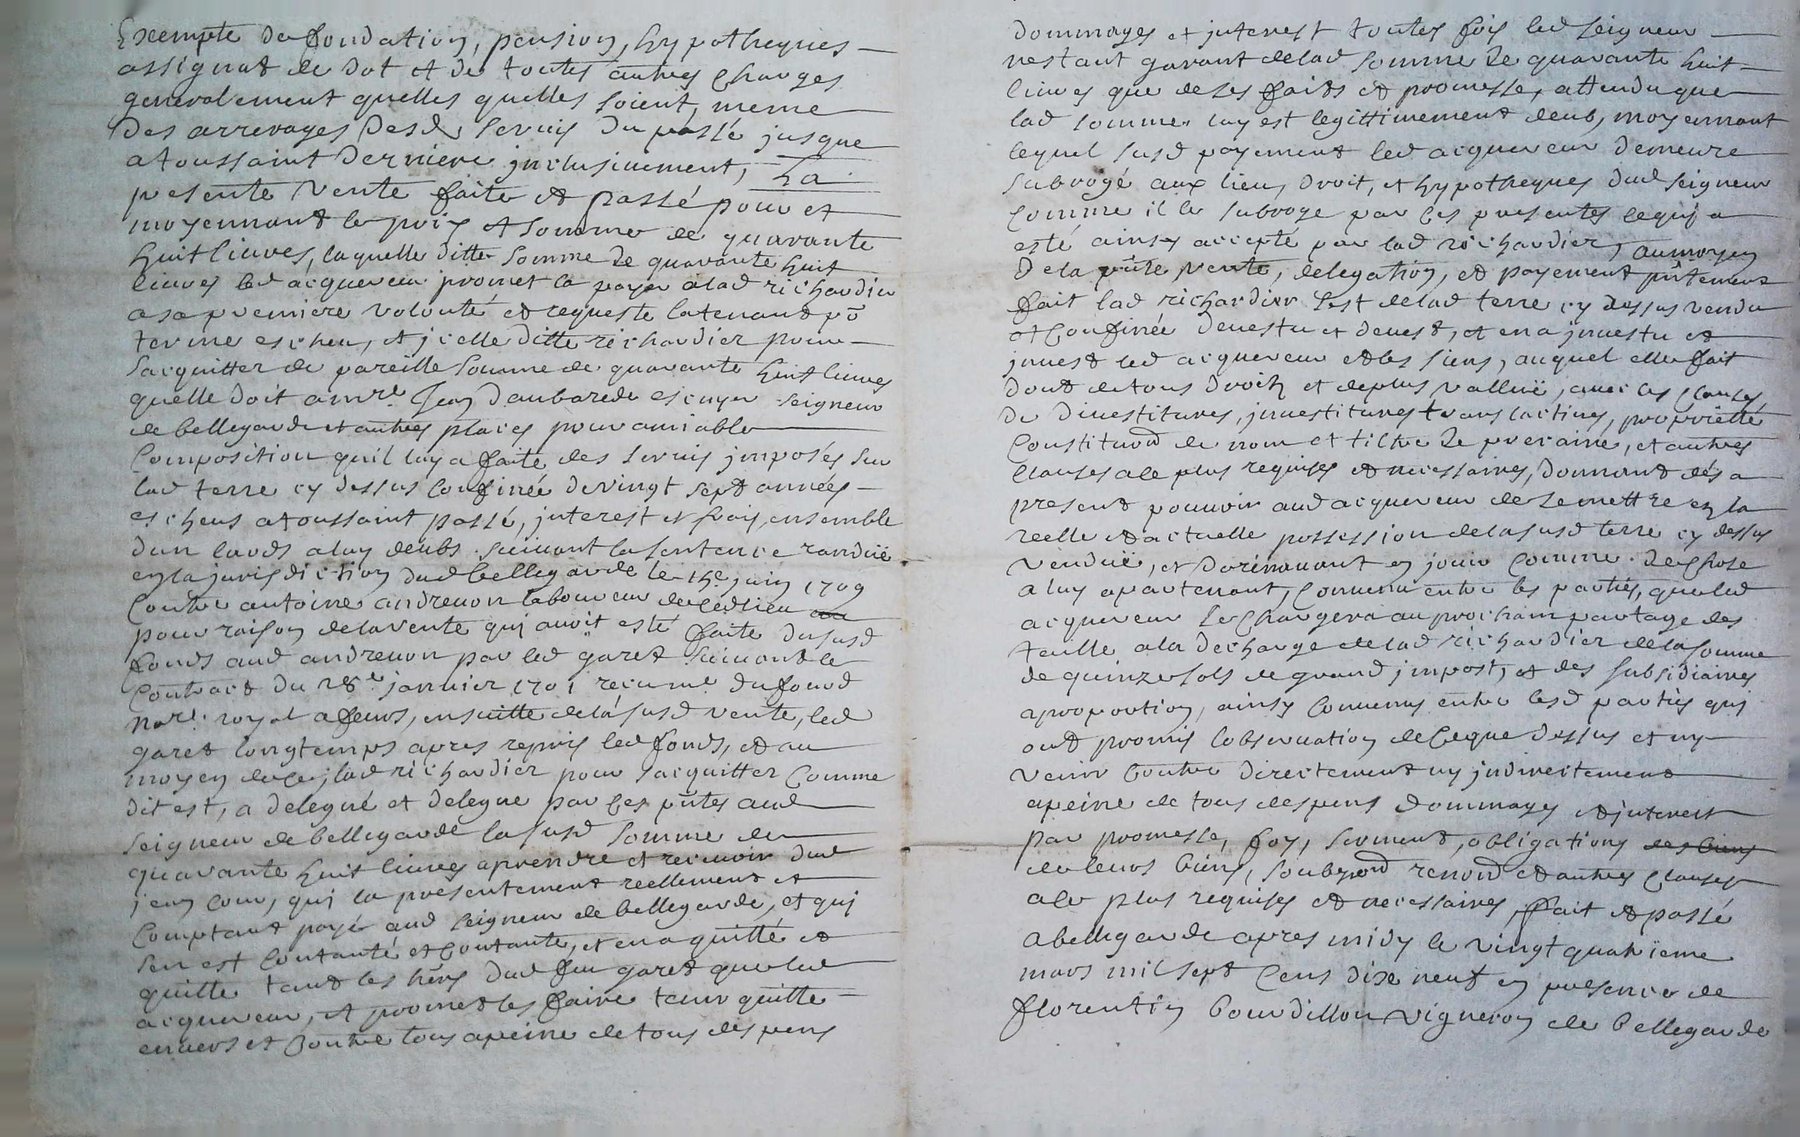 Exempte de fondation, pension, hypotheques
assignat de dot et de toutes autres charges
generalement quelles quelles soient, meme
des arrerages desd servis du passé jusque
a toussaint derniere inclusivement, La
presente vente faite et passé pour et
moyennant le prix et somme de quarante
huit livres, laquelle ditte somme de quarante huit
livres led acquereur promet la payer a lad richardier
a sa premiere volonté et requeste la tenant po
terme escheu, et jcelle ditte richardier pour
sacquitter de pareille somme de quarante huit livres
quelle doit a mre Jean daubarede escuyer seigneur
de bellegarde et autres places pour amiable
Composition quil luy a faite des servis jmposés sur
lad terre cy dessus confinée de vingt sept années
escheus a toussaint passé, jnterest et frais, ensemble
dun lauds a luy deubs suivant la sentence randuë
en la jurisdiction dud bellegarde le juin 1709
Contre antoine andrevon laboureur de cedlieu
pour raison de la vente qui avoit esté faite dususd
fonds aud andrevon par led garet suivant le
Contract du 28e janvier 1701 receu me dufound
nore royal a feurs, ensuitte de la susd vente, led
garet longtemps apres repris led fonds, et au
moyen de ce, lad richardier pour sacquitter Comme
dit est, a delegué et delegue par ces pntes aud
seigneur de bellegarde la susd somme de
quarante huit livres a prendre et recevoir dud
jean cour, qui la presentement reellement et
Comptant payé aud seigneur de bellegarde, et qui
sen est contanté et contante, et en a quitté et
quitte tant les hers dud feu garet que led
acquereur, et promet les faire tenir quitte
envers et contre tous a peine de tous despens
dommages et jnterest toutes fois led seigneur
nestant garant de lad somme de quarante huit
livres que de ses faits et promesse, attendu que
lad somme luy est legittimement deub, moyennant
lequel susd payement led acquereur demeure
subrogé aux lieu, droit, et hypotheques dud seigneur
Comme il le subroge par ces presentes ce qui a
esté ainsy accepté par lad richardier, au moyen
De la pnte vente, delegation, et payement pntement
fait lad richardier sest de lad terre cy dessus vendu
et confinée devestu et devest, et en a jnvestu et
jnvest led acquereur et les siens, auquel elle fait
dont de tous droits et deplus valluë, avec les clauses
De divestitures, jnvestitures translactives, proprietté
Constitund de nom et tiltre de precaire, et autres
Clauses a ce plus requises et necessaires, donnant dés a
present pouvoir aud acquereur de se mettre en la
reelle et actuelle possession de la susd terre cy dessus
venduë, et dorénavant en jouir comme de chose
a luy apartenant, convenu entre les parties, que led
acquereur se chargera au prochain partage des
taille a la decharge de lad richardier de la somme
de quinze sols de grand jmpost, et des subsidiaires
a proportion, ainsy convenu entre lesd parties qui
ont promis lobservation de ce que dessus et ny
venir contre directement ny jndirectement
a peine de tous despens dommages et jnterest
par promesse, foy, serment, obligations des biens
de leurs biens, soubzond renond et autres clauses
a ce plus requises et necessaires, ffait et passé
a bellegarde apres midy le vingt quatrieme
mars mil sept cens dix neuf en presence de
florentin bourdillon vigneron de bellegarde